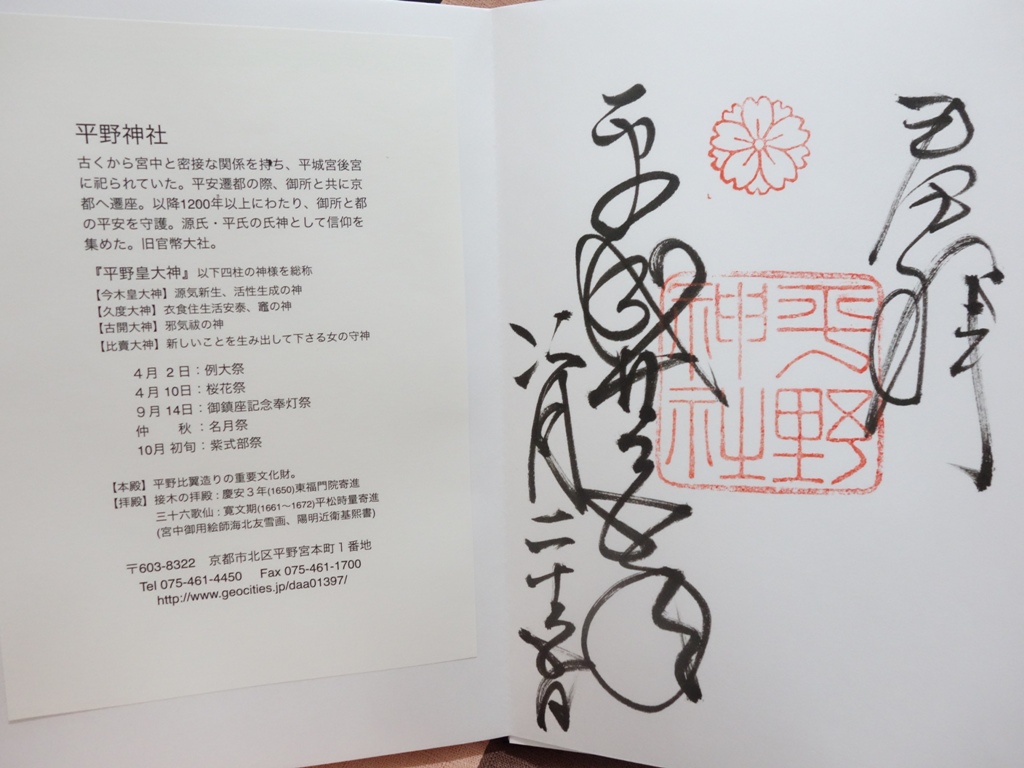 平野神社
古くから宮中と密接な関係を持ち、平城宮後宮
に祀られていた。平安遷都の際、御所と共に京
都へ遷座。以降1200年以上にわたり、御所と都
の平安を守護。源氏・平氏の氏神として信仰を
集めた。旧官幣大社。
『平野皇大神』以下四柱の神様を総称
【今木皇大神】源気新生、活性生成の神
【久度大神】衣食住生活安泰、竈の神
【古開大神】邪気祓の神
【比賣大神】新しいことを生み出して下さる女の守神
4月 2日：例大祭
4月 10日：桜花祭
9月 14日：御鎮座記念奉灯祭
仲 秋 ：名月祭
10月 初旬：紫式部祭
【本殿】平野比翼造りの重要文化財。
【拝殿】接木の拝殿：慶安3年(1650)東福門院寄進
三十六歌仙：寛文期(1661〜1672)平松時量寄進
(宮中御用絵師海北友雪画、陽明近衛基熙書)
〒603-8322 京都市北区平野宮本町1番地
Tel 075-461-4450 Fax 075-461-1700
http://www.geocities.jp/daa01397/
奉拝
平野
神社
平成廿五年
六月二十五日